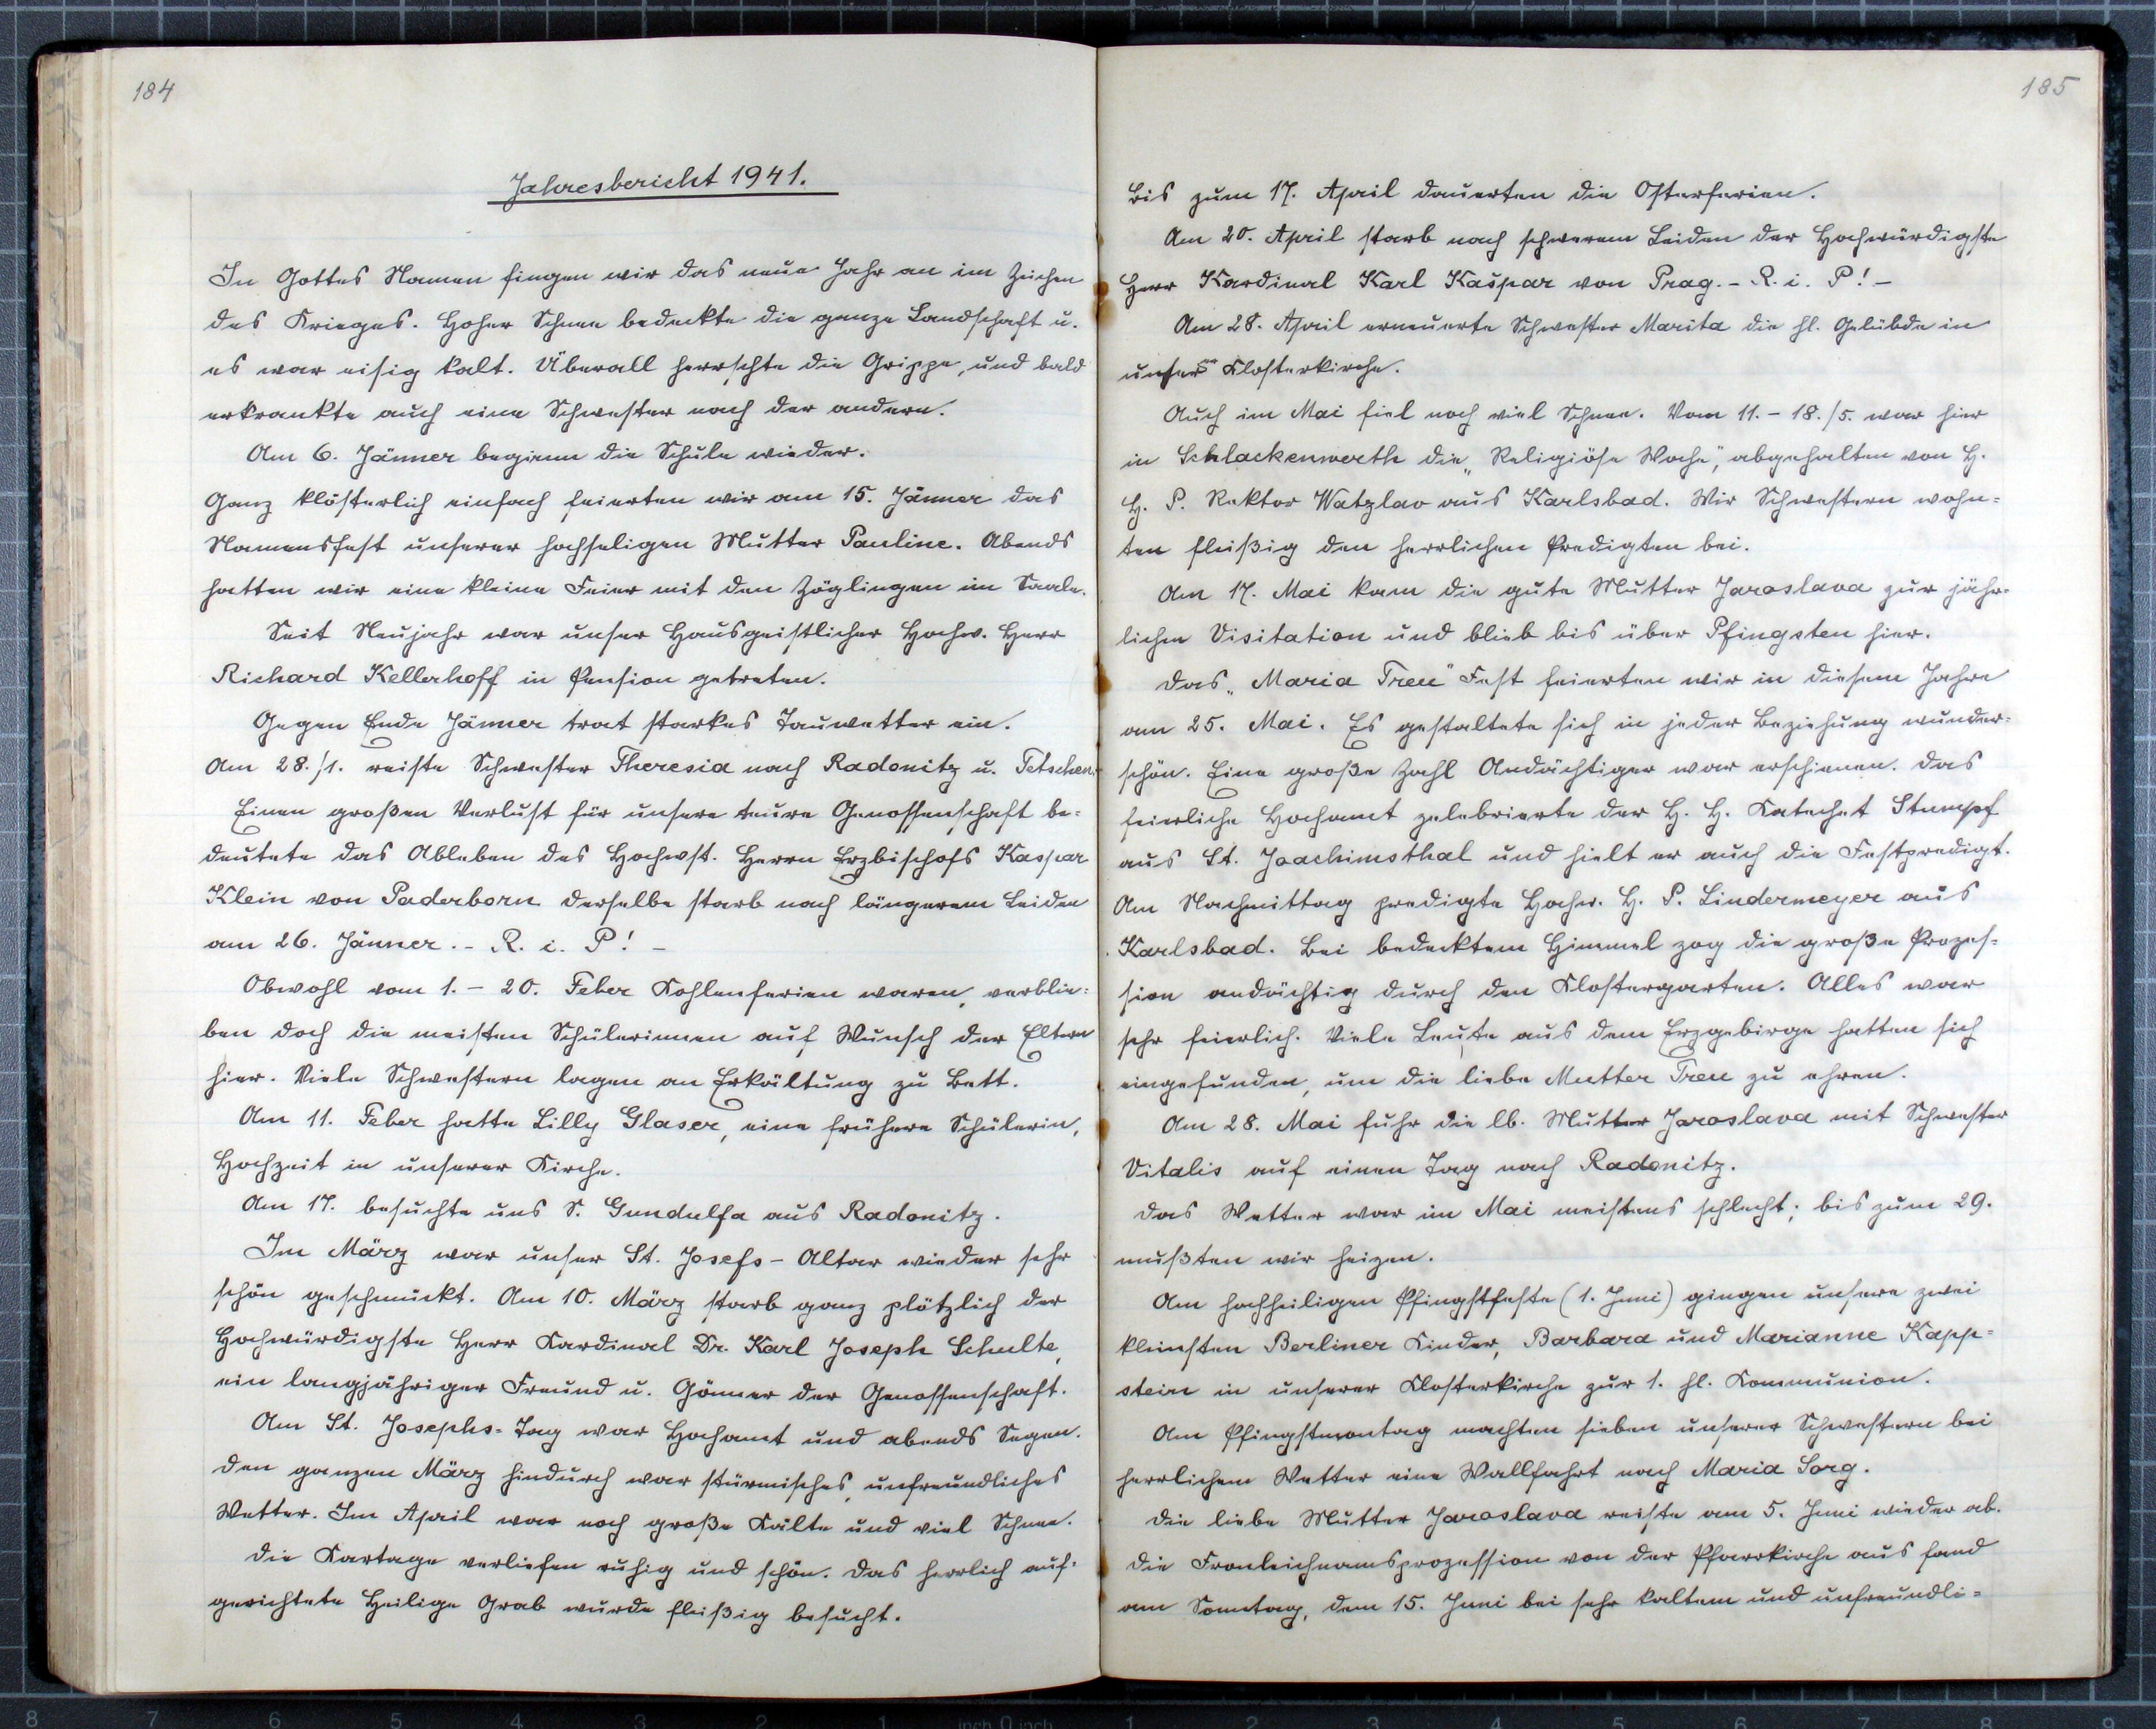 184
Jahresbericht 1941.
In Gottes Namen fingen wir das neue Jahr an im Zeichen
des Krieges. Hoher Schnee bedeckte die ganze Landschaft u.
es war eisig kalt. Überall herrschte die Grippe, und bald
erkrankte auch eine Schwester nach der andern.
Am 6. Jänner begann die Schule wieder.
Ganz klösterlich einfach feierten wir am 15. Jänner das
Namensfest unserer hochseligen Mutter Pauline. Abends
hatten wir eine kleine Feier mit den Zöglingen im Saale.
Seit Neujahr war unser Hausgeistlicher Hochw. Herr
Richard Kellerhoff in Pension getreten.
Gegen Ende Jänner trat starkes Tauwetter ein.
Am 28./1. reiste Schwester Theresia nach Radonitz u. Tetschen.
Einen großen Verlust für unsere teure Genossenschaft be=
deutete das Ableben des Hochwst. Herrn Erzbischofs Kaspar
Klein von Paderborn derselbe starb nach längerem Leiden
am 26. Jänner. - R. i. P! -
Obwohl vom 1. - 20. Feber Kohlenferien waren, verblie=
ben doch die meisten Schülerinnen auf Wunsch der Eltern
hier. Viele Schwestern lagen an Erkältung zu Bett.
Am 11. Feber hatte Lilly Glaser, eine frühere Schülerin,
Hochzeit in unserer Kirche.
Am 17. besuchte uns S. Gundulfa aus Radonitz.
Im März war unser St. Josefs - Altar wieder sehr
schön geschmückt. Am 10. März starb ganz plötzlich der
Hochwürdigste Herr Kardinal Dr. Karl Joseph Schulte,
ein langjähriger Freund u. Gönner der Genossenschaft.
Am St. Josephs=Tag war Hochamt und abends Segen.
Den ganzen März hindurch war stürmisches, unfreundliches
Wetter. Im April war noch große Kälte und viel Schnee.
Die Kartage verliefen ruhig und schön. Das herrlich auf=
gerichtete Heilige Grab wurde fleißig besucht.
185
Bis zum 17. April dauerten die Osterferien.
Am 20. April starb nach schwerem Leiden der Hochwürdigste
Herr Kardinal Karl Kašpar von Prag. - R. i. P! -
Am 28. April erneuerte Schwester Marita die hl. Gelübde in
unserer Klosterkirche.
Auch im Mai fiel noch viel Schnee. Vom 11. - 18./5. war hier
in Schlackenwerth die „Religiöse Woche", abgehalten von H.
H. P. Rektor Watzlav aus Karlsbad. Wir Schwestern wohn=
ten fleißig den herrlichen Predigten bei.
Am 17. Mai kam die gute Mutter Jaroslava zur jähr=
lichen Visitation und blieb bis über Pfingsten hier.
Das „Maria Treu" Fest feierten wir in diesem Jahre
am 25. Mai. Es gestaltete sich in jeder Beziehung wunder=
schön. Eine große Zahl Andächtiger war erschienen. Das
feierliche Hochamt zelebrierte der H. H. Katechet Stumpf
aus St. Joachimsthal und hielt er auch die Festpredigt.
Am Nachmittag predigte Hochw. H. P. Lindermeyer aus
Karlsbad. Bei bedecktem Himmel zog die große Prozes=
sion andächtig durch den Klostergarten. Alles war
sehr feierlich. Viele Leute aus dem Erzgebirge hatten sich
eingefunden, um die liebe Mutter Treu zu ehren.
Am 28. Mai fuhr die lb. Mutter Jaroslava mit Schwester
Vitalis auf einen Tag nach Radonitz.
Das Wetter war im Mai meistens schlecht; bis zum 29.
mußten wir heizen.
Am hochheiligen Pfingstfeste (1. Juni) gingen unsere zwei
kleinsten Berliner Kinder, Barbara und Marianne Kapp=
stein in unserer Klosterkirche zur 1. hl. Kommunion.
Am Pfingstmontag machten sieben unserer Schwestern bei
herrlichem Wetter eine Wallfahrt nach Maria Sorg.
Die liebe Mutter Jaroslava reiste am 5. Juni wieder ab.
Die Fronleichnamsprozession von der Pfarrkirche aus fand
am Sonntag, dem 15. Juni bei sehr kaltem und unfreundli=
8 7 6 5 4 3 2 1 inch 0 inch 1 2 3 4 5 6 7 8 9